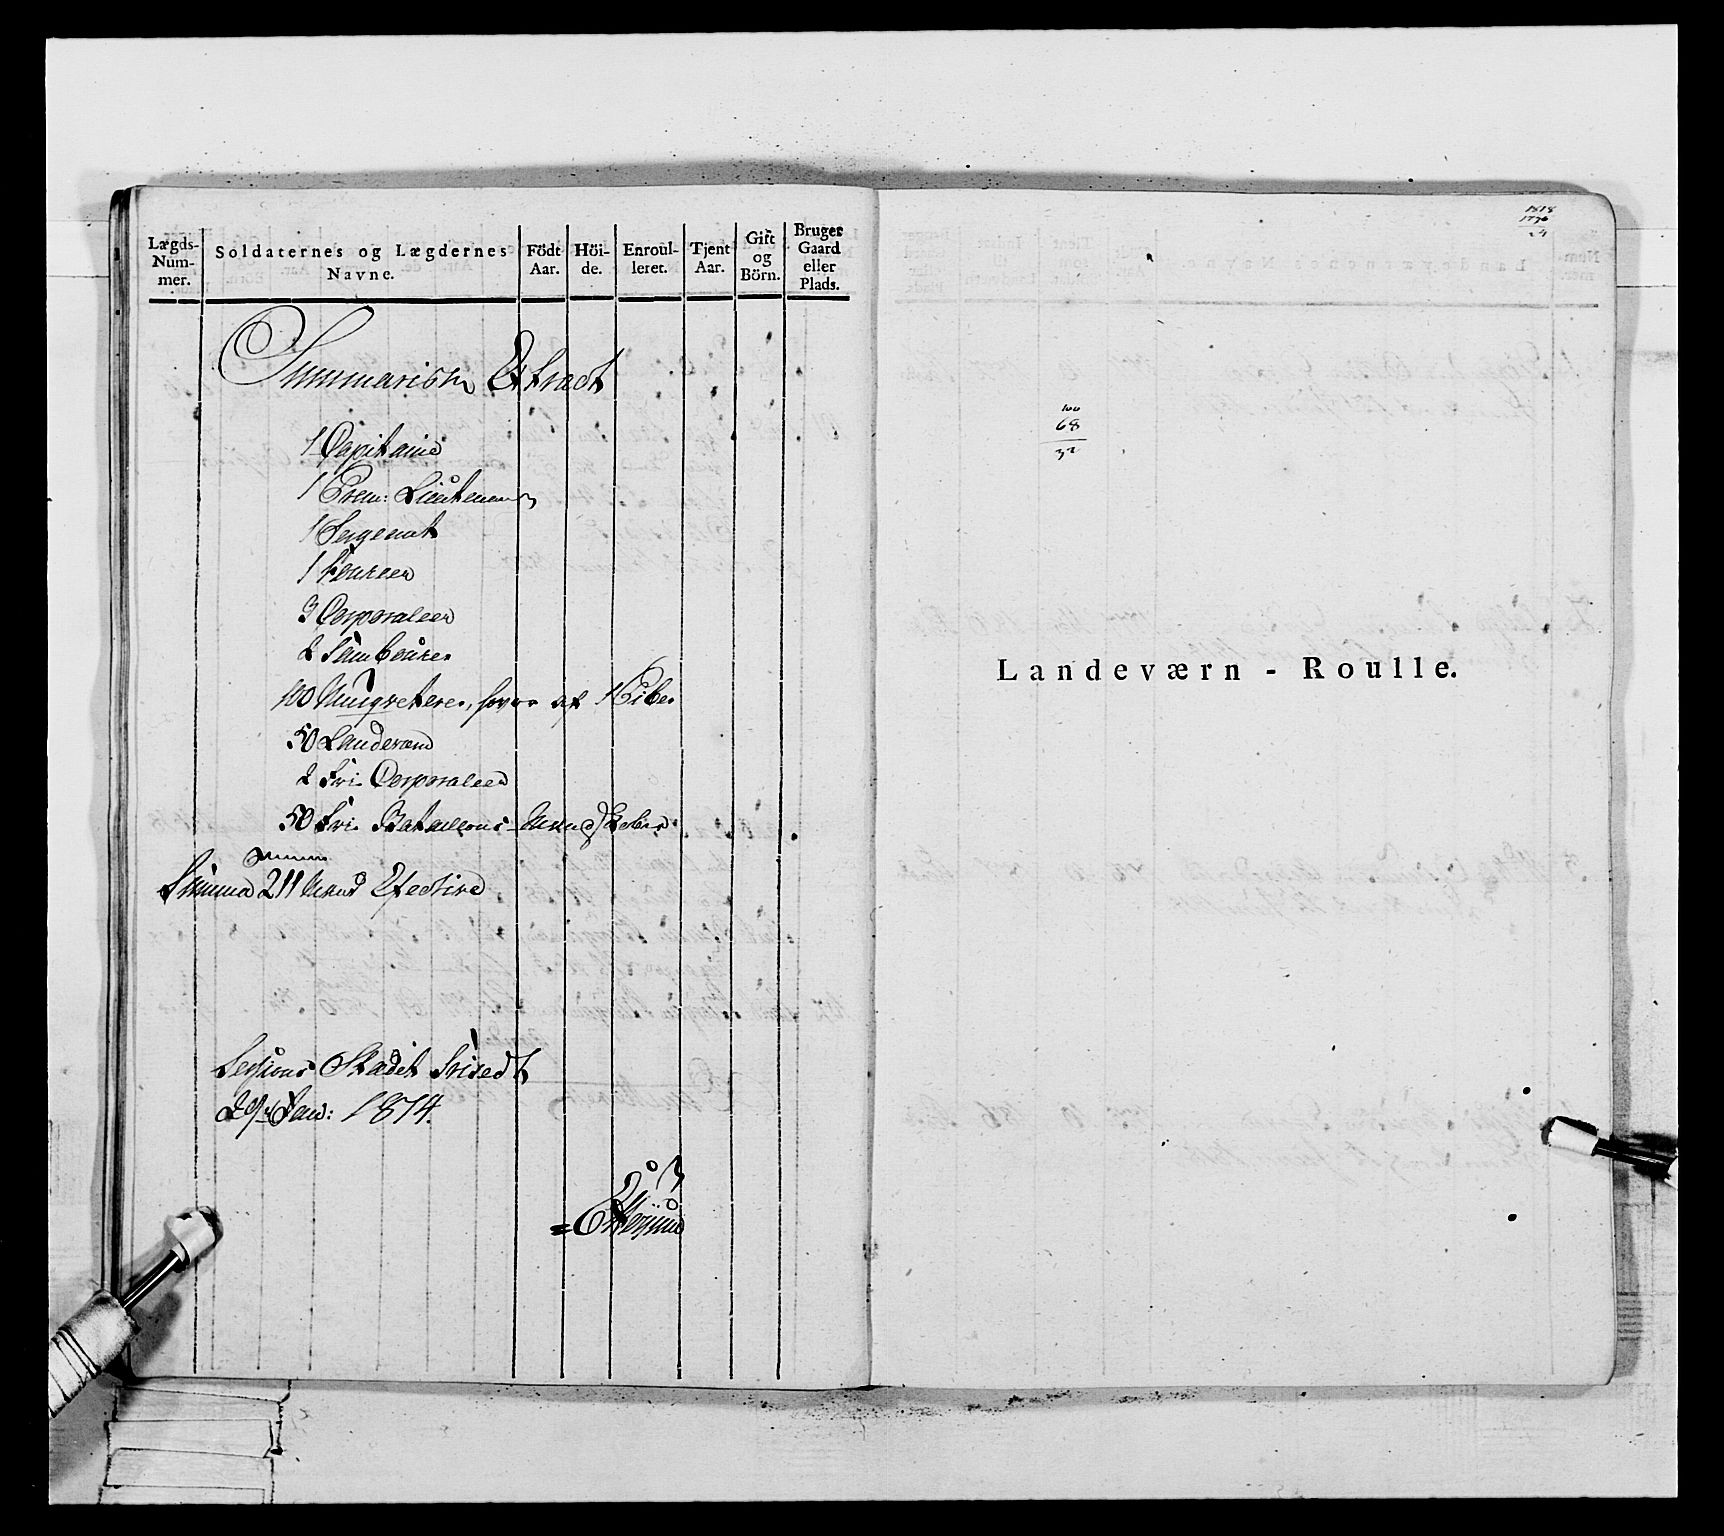 Lægds-
Num-
mer.
Soldaternes og Lægdernes
Navne.
Födt
Aar.
Höi-
de.
Enroul-
leret.
Tjent
Aar.
Gift
og
Börn.
Bruger
Gaard
eller
Plads.
Summarisk Extract
1 Capitaine
1 Prem: Lieutenant
1 Sergeant
1 Foureer
3 Corporaler
2 Tambourer
100 Musqveterer, hvor af 1 Piber
50 Landeværn
2 Fri Corporaler
50 Fri Batallions Mænd
Summa 211 Mand Efective
Sessions Stædet
29de Jan: 1814.
1818
100
68
32
Landeværn - Roulle.